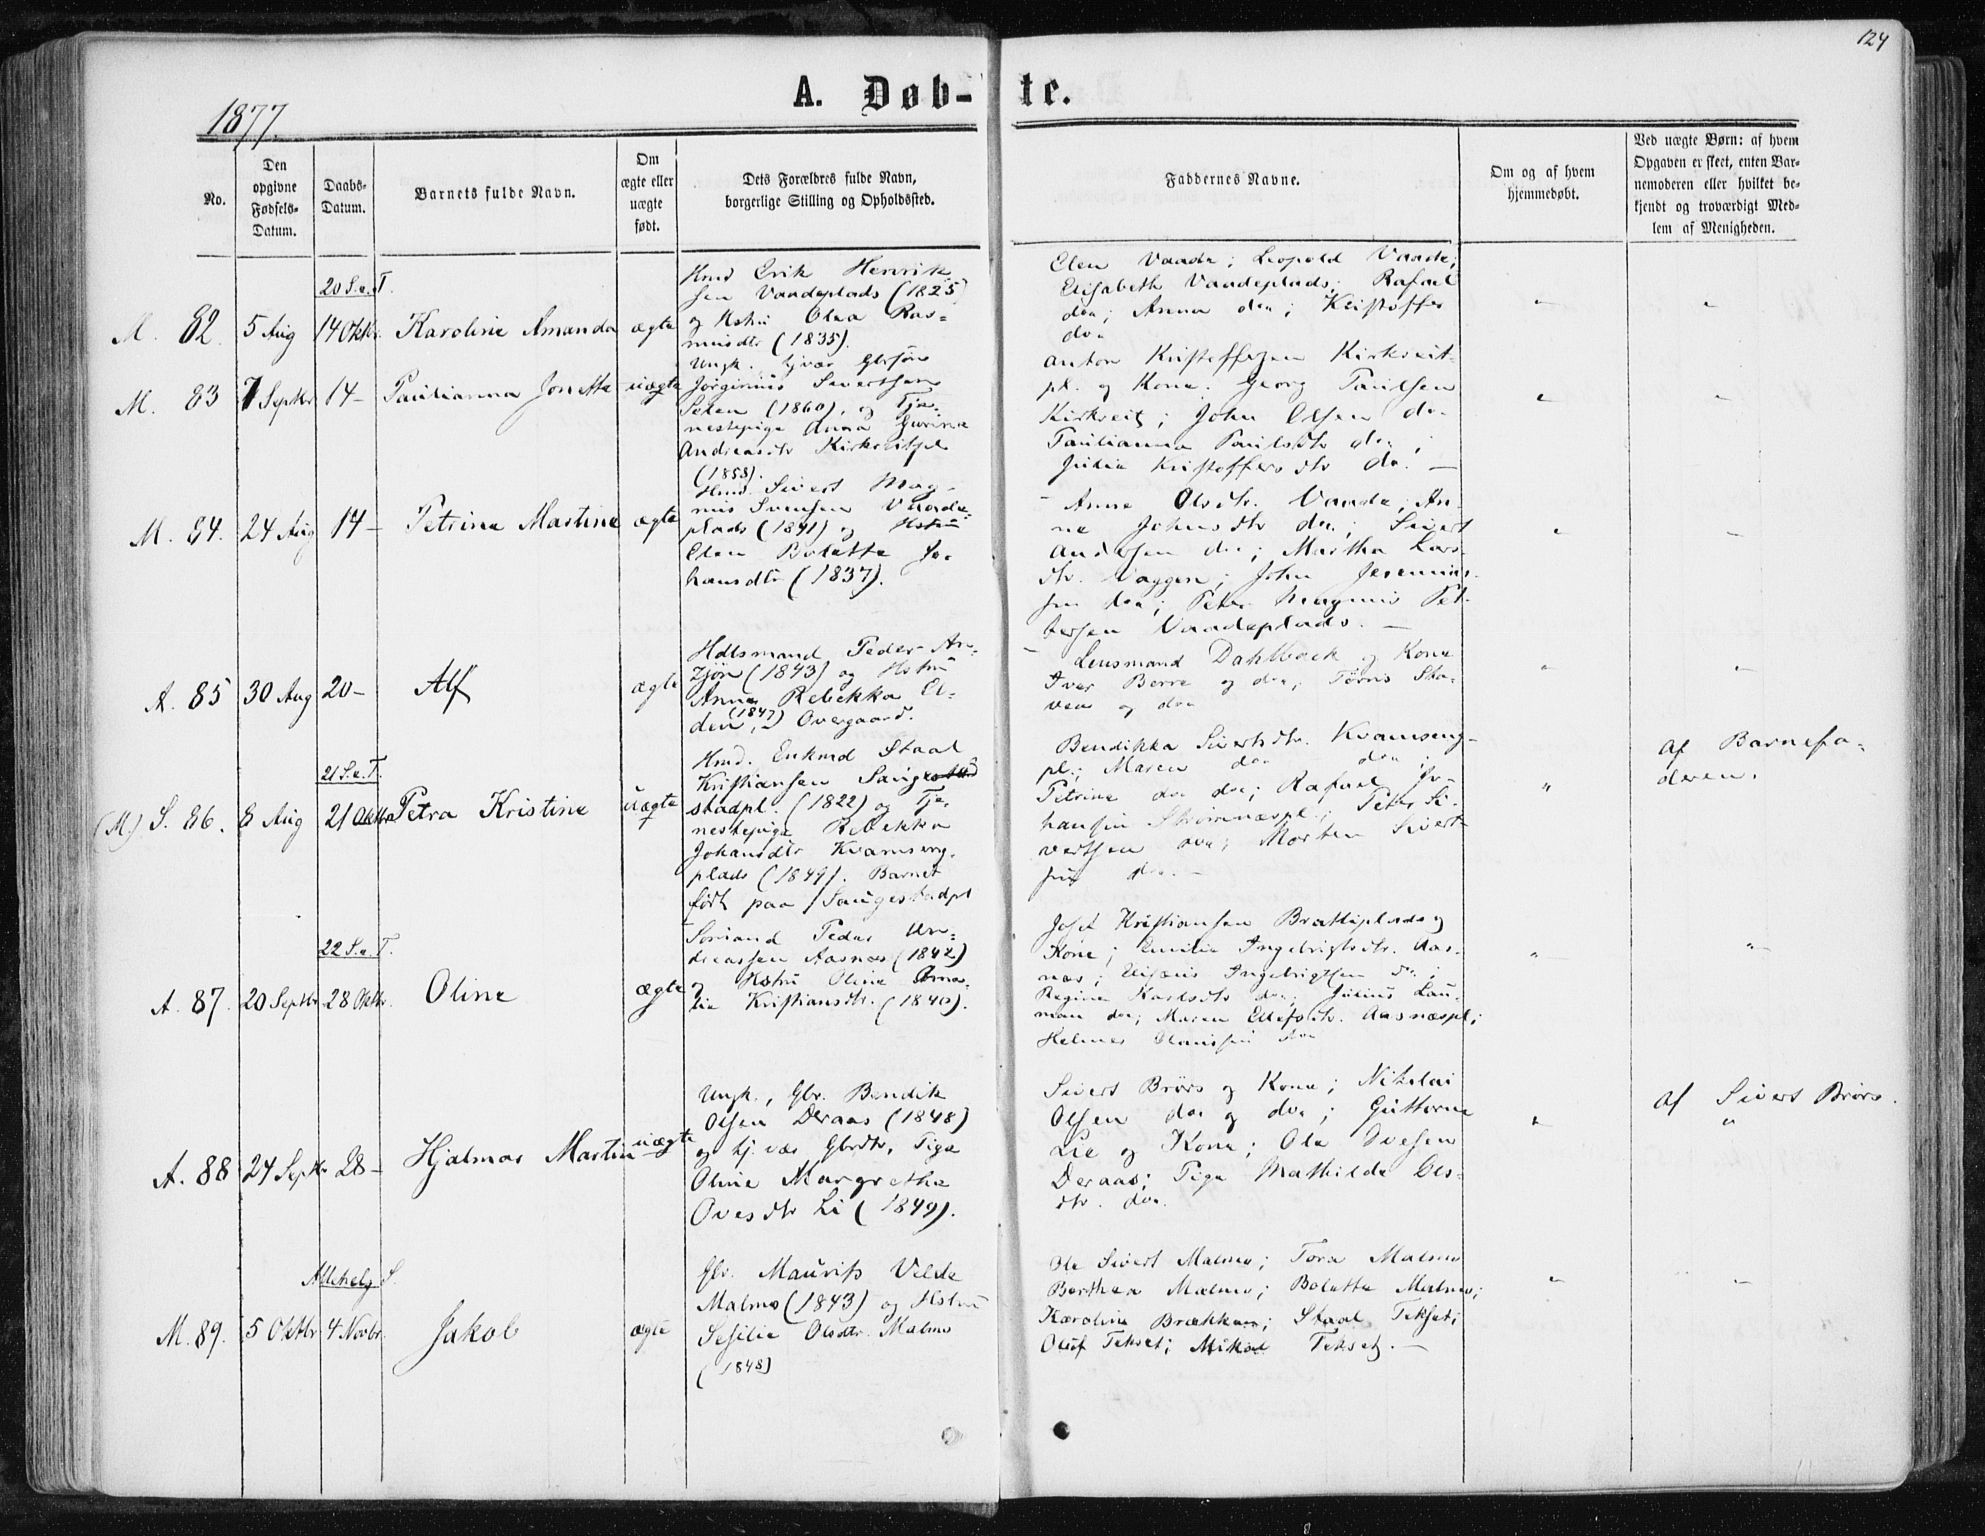 124
A. Døb-te.
1877.
No.
Den opgivne Fødsels-Datum.
Daabs-Datum.
Barnets fulde Navn.
Om ægte eller uægte født.
Dets Forældres fulde Navn, borgerlige Stilling og Opholdssted.
Faddernes Navne.
Om og af hvem hjemmedøbt.
Ved uægte Børn: af hvem Opgaven er skeet, enten Barnemoderen eller hvilket bekjendt og troværdigt Medlem af Menigheden.
20 S. e. T.
M. 82. 5 Aug 14 Oktr. Karoline Amanda ægte
Hmd Erik Henrik
sen Vaadeplads (1825)
og Hstru Olea Ras=
musdtr (1835).
Elen Vaade; Leopold Vaade;
Elisabeth Vaadeplads; Rafael
do; Anna do; Kristoffer
do
M. 83 7 Septbr 14 - Paulianna Jonette uægte
Ungk. hjvær Gbrsøn
Jørginus Sivertsen
(1860), og Tje-
nestepige Anna Gurine
Andreasdtr Kirkreitpl
(1858).
Anton Kristoffersen Kirkreit-
pl. og Kone. Georg Paulsen
Kirkreit; John Olsen do
Paulianna Paulsdtr do;
Julia Kristoffersdtr do. -
M. 84. 24 Aug 14 - Petrine Martine ægte
Hmd. Sivert Mag-
nus Svensen Vaade
plads (1841) og Hstru
Elen Bolette Jo-
hansdtr (1837).
Anne Olsdtr. Vaade; An-
ne Johnsdtr do; Sivert
Andersen do; Martha Lars-
dtr. Vaggen; John Jeremias-
sen do; Peter Magnus Pet-
tersen Vaadeplads. -
A. 85 30 Aug 20 - Alf ægte
Hdlsmand Peder An-
zjøn (1843) og Hstru
Anne Rebekka El-
den, (1847) Overgaard.
Lensmand Dahlback og Kone
Iver Berre og do; Tørris Sta-
ven og do
21 S. e. T.
(M.) S. 86. 8 Aug 21 Oktbr Petra Kristine uægte
Hmd. Enkmd Staal
Kristiansen Sauge
stadpl. (1822) og Tje-
nestepige Rebekka
Johansdtr Kvamseng-
plads (1849). Barnet
født paa Saugestadpl
Bendikka Sivertsdtr. Kvamseng-
pl.; Maren do do;
Petrine do do; Rafael Jo-
hansen; Peter Si-
vertsen do; Morten Sivert
sen do. -
af Barnefa-
deren.
22 S. e. T.
A. 87. 20 Septbr 28 Oktbr. Oline ægte
Sømand Peder An-
dreassen Aasnæs (1842)
og Hstru Oline Ama-
lie Kristiansdtr. (1840).
Josef Kristiansen Bratliplads og
Kone; Emilie Ingebrigtsdtr. Aas-
næs; Elisæus Ingebrigtsen do;
Regine Karlsdtr do; Julius Lau-
man do; Maren Ellefsdtr. Aasnæspl;
Helmer Olaussen do
A. 88 24 Septbr 28 - Hjalmar Martin uægte
Ungk., Gbr. Bendik
Olsen Deraas (1848)
og hj. vær Gbrdtr. Pige
Oline Margrethe
Ovesdtr Li (1849).
Sivert Brørs og Kone; Nikolai
Olsen do og do; Guttorm
Lie og Kone; Ole Ovesen
Deraas; Pige Mathilde Ols-
dtr. do.
af Sivert Brørs.
Allehelg S.
M. 89. 5 Oktbr 4 Novbr. Jakob ægte
Gbr. Mauritz Velde
Malmo (1843) og Hstru
Sesilie Olsdtr. Malmo
(1848)
Ole Sivert Malmo; Tora Malmo
Berthea Malmo; Bolette Malmo;
Karoline Brækkan; Staal Tekset;
Oluf Tekset; Mikal Tekset. -